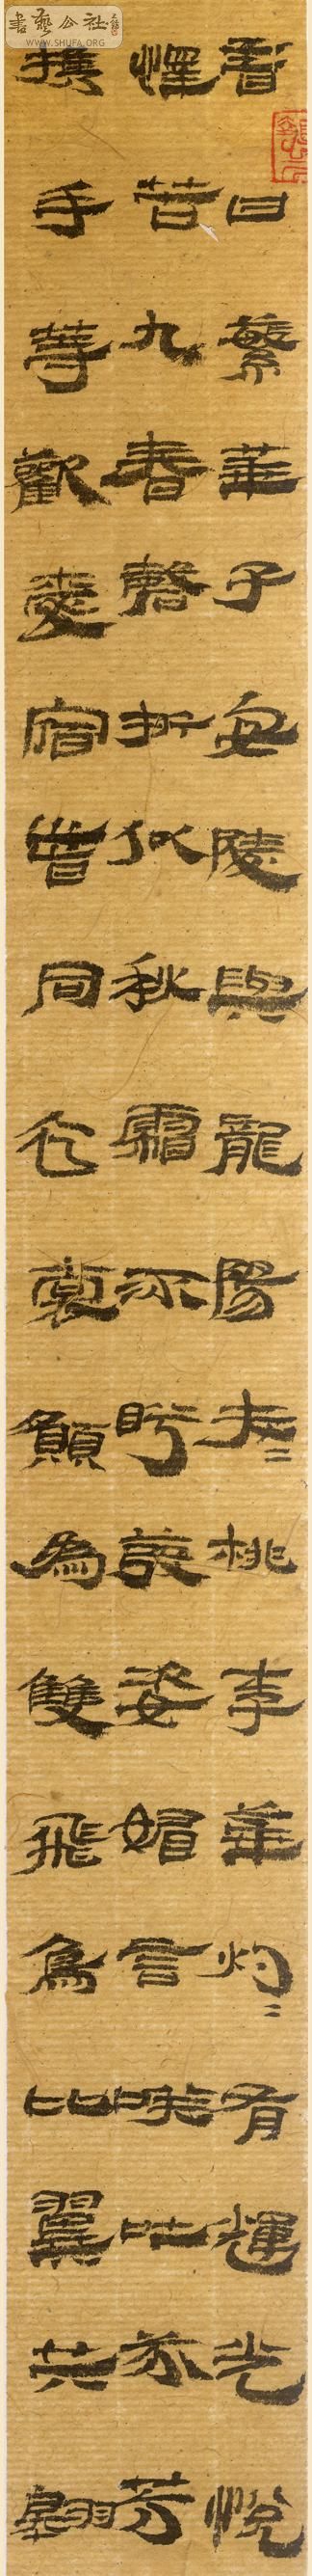 書藝公社
WWW.SHUFA.ORG
昔日繁華子安陵與龍陽夭〻桃李華灼〻有輝光悅
懌若九春磬折似秋霜流盻發姿媚言咲吐芬芳
攜手等歡愛宿昔同衣裳願為雙飛鳥比翼共翱